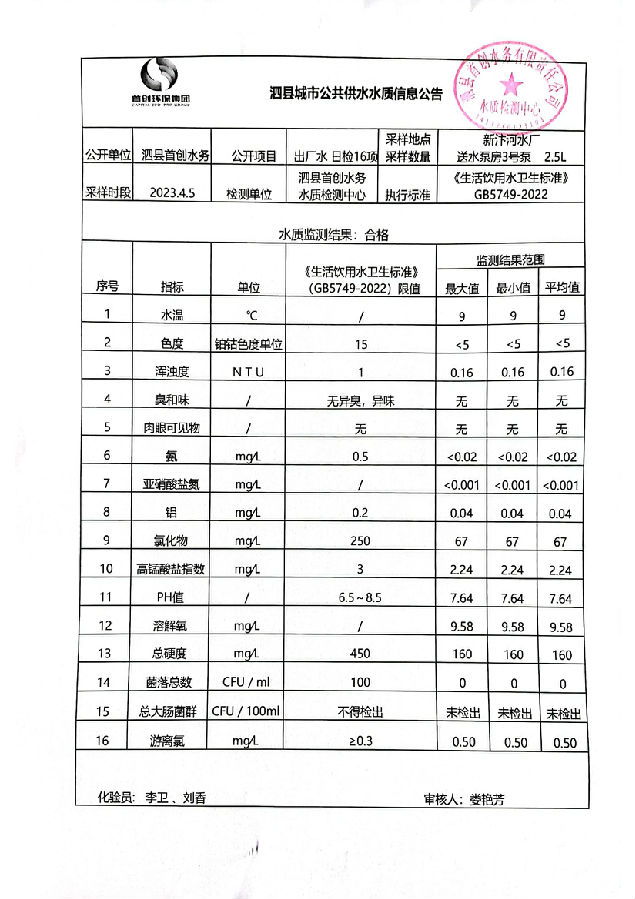 首创环保集团
泗县城市公共供水水质信息公告
泗县首创水务有限责任公司
水质检测中心
公开单位 泗县首创水务 公开项目 出厂水 日检16项 采样地点 采样数量 新汴河水厂 送水泵房3号泵 2.5L
采样时段 2023.4.5 检测单位 泗县首创水务 水质检测中心 执行标准 《生活饮用水卫生标准》 GB5749-2022
水质监测结果：合格
序号 指标 单位 《生活饮用水卫生标准》（GB5749-2022）限值 监测结果范围
最大值 最小值 平均值
1 水温 ℃ / 9 9 9
2 色度 铂钴色度单位 15 <5 <5 <5
3 浑浊度 NTU 1 0.16 0.16 0.16
4 臭和味 / 无异臭，异味 无 无 无
5 肉眼可见物 / 无 无 无 无
6 氨 mg/L 0.5 <0.02 <0.02 <0.02
7 亚硝酸盐氮 mg/L / <0.001 <0.001 <0.001
8 铝 mg/L 0.2 0.04 0.04 0.04
9 氯化物 mg/L 250 67 67 67
10 高锰酸盐指数 mg/L 3 2.24 2.24 2.24
11 PH值 / 6.5~8.5 7.64 7.64 7.64
12 溶解氧 mg/L / 9.58 9.58 9.58
13 总硬度 mg/L 450 160 160 160
14 菌落总数 CFU / ml 100 0 0 0
15 总大肠菌群 CFU / 100ml 不得检出 未检出 未检出 未检出
16 游离氯 mg/L ≥0.3 0.50 0.50 0.50
化验员：李卫、刘香 审核人：娄艳芳